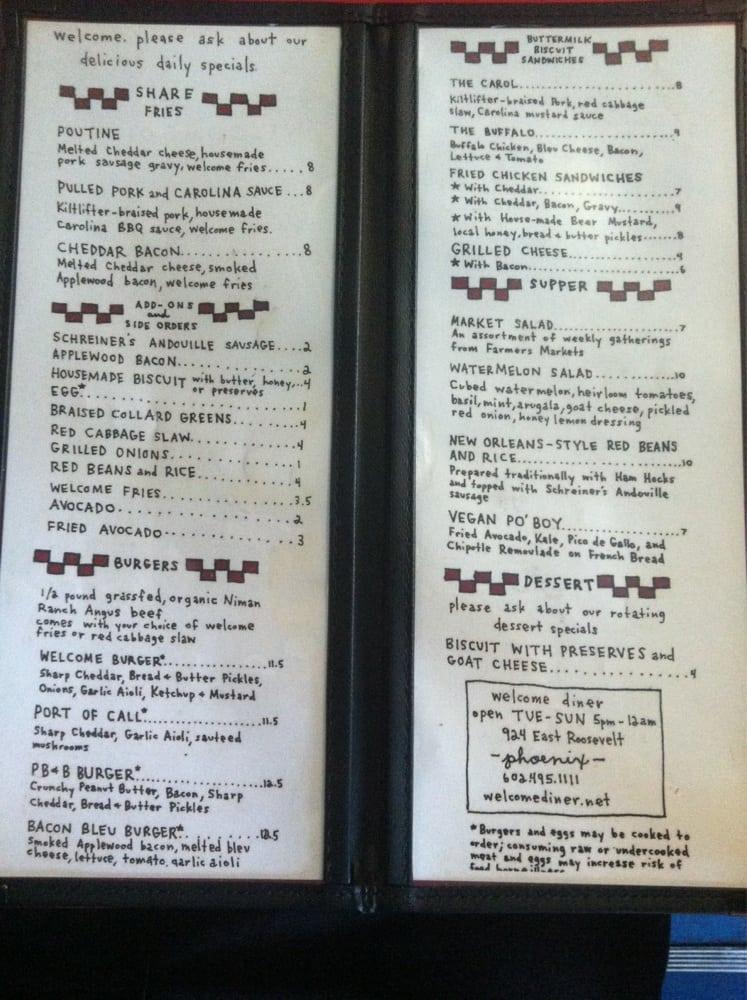 welcome. please ask about our
delicious daily specials.
SHARE
FRIES
POUTINE
Melted Cheddar cheese, housemade
pork sausage gravy, welcome fries.....8
PULLED PORK and CAROLINA SAUCE...8
Kiltlifter-braised pork, housemade
Carolina BBQ sauce, welcome fries.
CHEDDAR BACON..............8
Melted Cheddar cheese, smoked
Applewood bacon, welcome fries
ADD-ONS
and
SIDE ORDERS
SCHREINER'S ANDOUILLE SAUSAGE....2
APPLEWOOD BACON..............2
HOUSEMADE BISCUIT with butter, honey,...4
or preserves
EGG*......................1
BRAISED COLLARD GREENS.........4
RED CABBAGE SLAW...........4
GRILLED ONIONS.............1
RED BEANS and RICE...........4
WELCOME FRIES.............3.5
AVOCADO..................2
FRIED AVOCADO..............3
BURGERS
1/2 pound grassfed, organic Niman
Ranch Angus beef
comes with your choice of welcome
fries or red cabbage slaw
WELCOME BURGER*...............11.5
Sharp Cheddar, Bread + Butter Pickles,
Onions, Garlic Aioli, Ketchup + Mustard
PORT OF CALL*.................11.5
Sharp Cheddar, Garlic Aioli, sauteed
mushrooms
PB+B BURGER*.................12.5
Crunchy Peanut Butter, Bacon, Sharp
Cheddar, Bread + Butter Pickles
BACON BLEU BURGER*..........12.5
Smoked Applewood bacon, melted bleu
cheese, lettuce, tomato, garlic aioli
BUTTERMILK
BISCUIT
SANDWICHES
THE CAROL......................8
Kiltlifter-braised Pork, red cabbage
slaw, Carolina mustard sauce
THE BUFFALO....................9
Buffalo Chicken, Bleu Cheese, Bacon,
Lettuce + Tomato
FRIED CHICKEN SANDWICHES
* With Cheddar...................7
* With Cheddar, Bacon, Gravy.........9
* With House-made Beer Mustard,
local honey, bread + butter pickles.......8
GRILLED CHEESE................4
* With Bacon......................6
SUPPER
MARKET SALAD..................7
An assortment of weekly gatherings
from Farmers Markets
WATERMELON SALAD..............10
Cubed watermelon, heirloom tomatoes,
basil, mint, arugala, goat cheese, pickled
red onion, honey lemon dressing
NEW ORLEANS-STYLE RED BEANS
AND RICE......................10
Prepared traditionally with Ham Hocks
and topped with Schreiner's Andouille
sausage
VEGAN PO' BOY.................7
Fried Avocado, Kale, Pico de Gallo, and
Chipotle Remoulade on French Bread
DESSERT
please ask about our rotating
dessert specials
BISCUIT WITH PRESERVES and
GOAT CHEESE................4
welcome diner
open TUE-SUN 5pm-12am
924 East Roosevelt
-phoenix-
602.495.1111
welcomediner.net
*Burgers and eggs may be cooked to
order; consuming raw or undercooked
meat and eggs may increase risk of